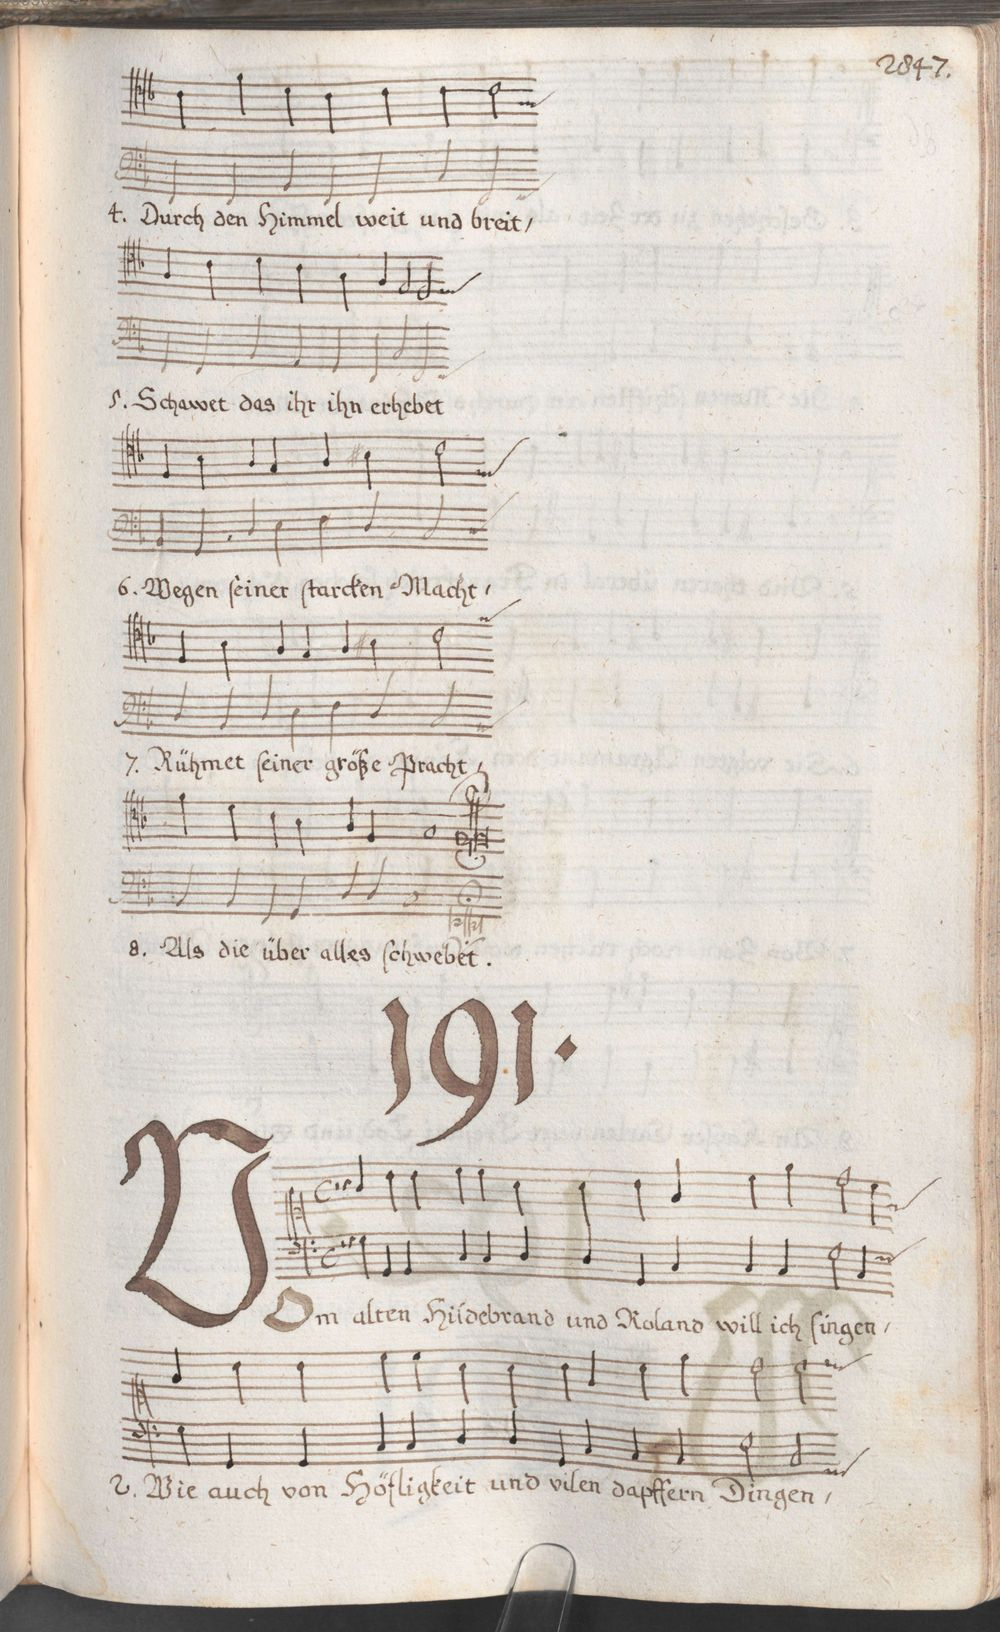 2847.
4. Durch den Himmel weit und breit,
5. Schawet das ihr ihn erhebet
6. Wegen seiner starcken Macht,
7. Rühmet seiner größe Pracht,
8. Als die über alles schwebet.
191.
VOm alten Hildebrand und Roland will ich singen,
2. Wie auch von Höfligkeit und vilen dapffern Dingen,